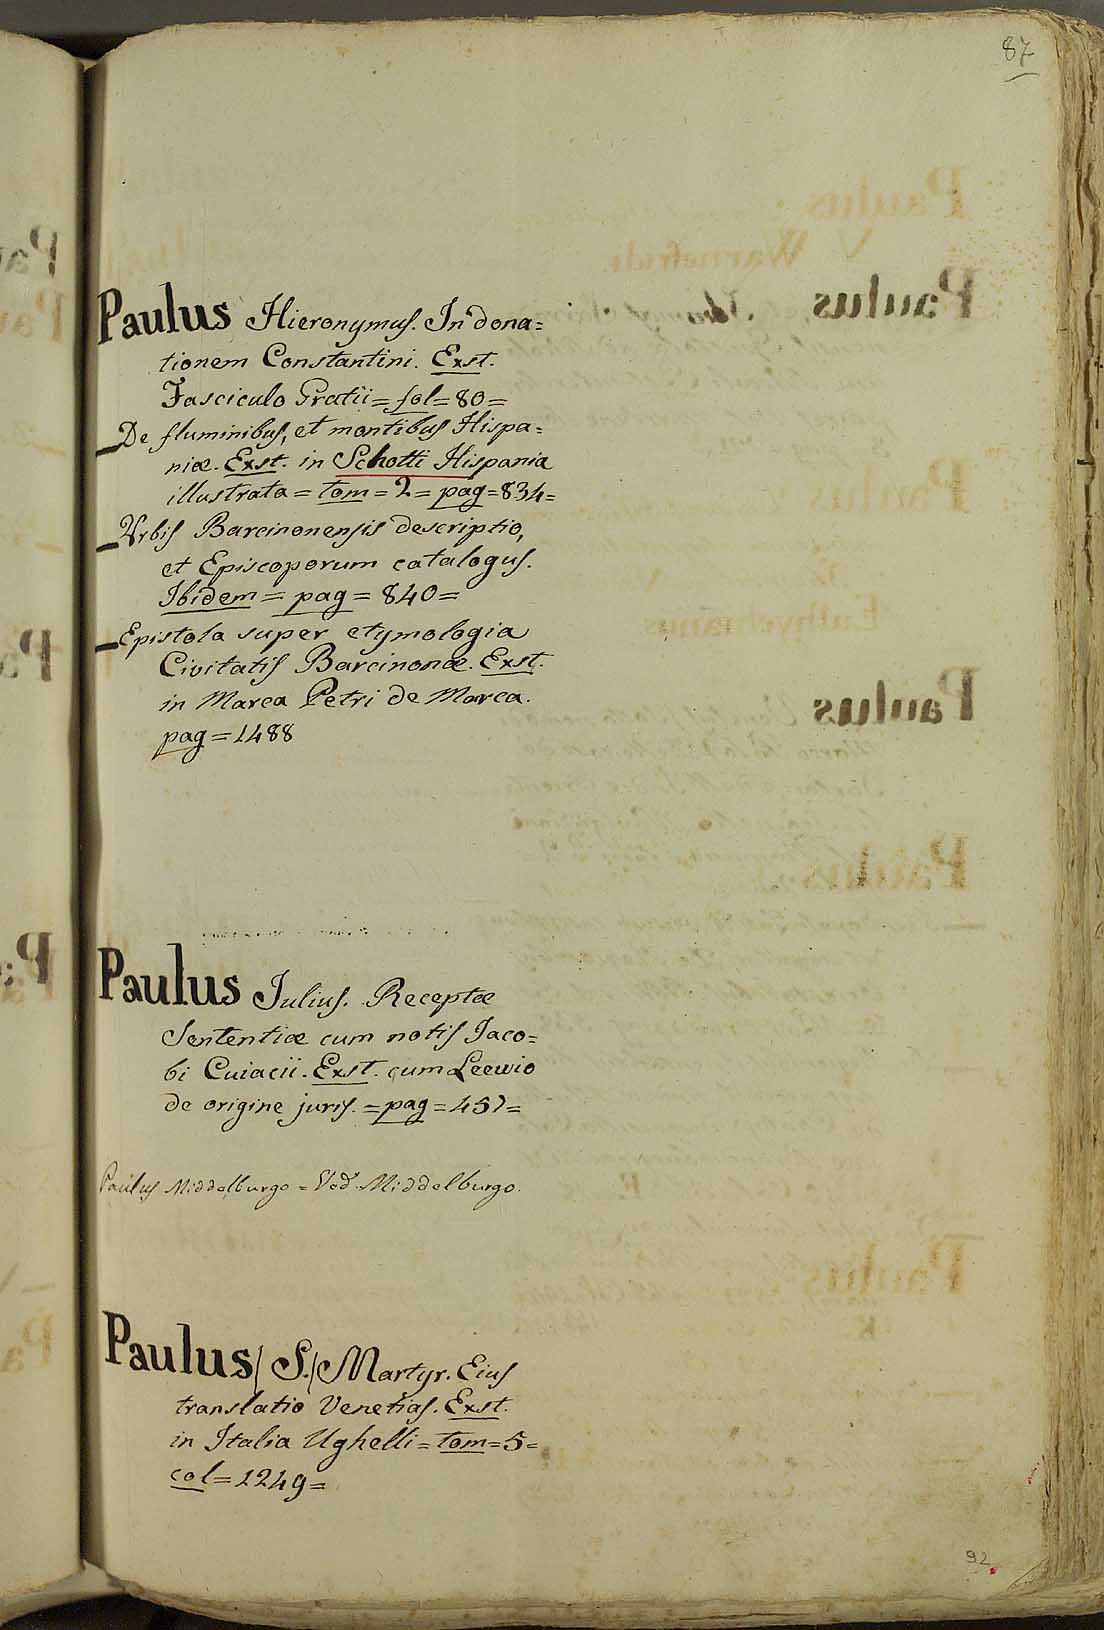 87
Paulus Hieronymus. In dona=
tionem Constantini. Exst.
Fasciculo Gratii = fol = 80 =
_De fluminibus, et montibus Hispa=
niæ. Exst. in Schotti Hispania
illustrata = tom = 2 = pag = 834 =
_Urbis Barcinonensis descriptio,
et Episcoporum catalogus.
Ibidem = pag = 840 =
_Epistola super etymologia
Civitatis Barcinonæ. Exst.
in Marca Petri de Marca.
pag = 1488
Paulus Julius. Receptæ
Sententiæ cum notis Jaco=
bi Cuiacii. Exst. cum Leewio
de origine juris. = pag = 457 =
Paulus Middelburgo = Ved. Middelburgo.
Paulus / S. / Martyr. Eius
translatio Venetias. Exst.
in Italia Ughelli = tom = 5 =
col = 1249 =
92